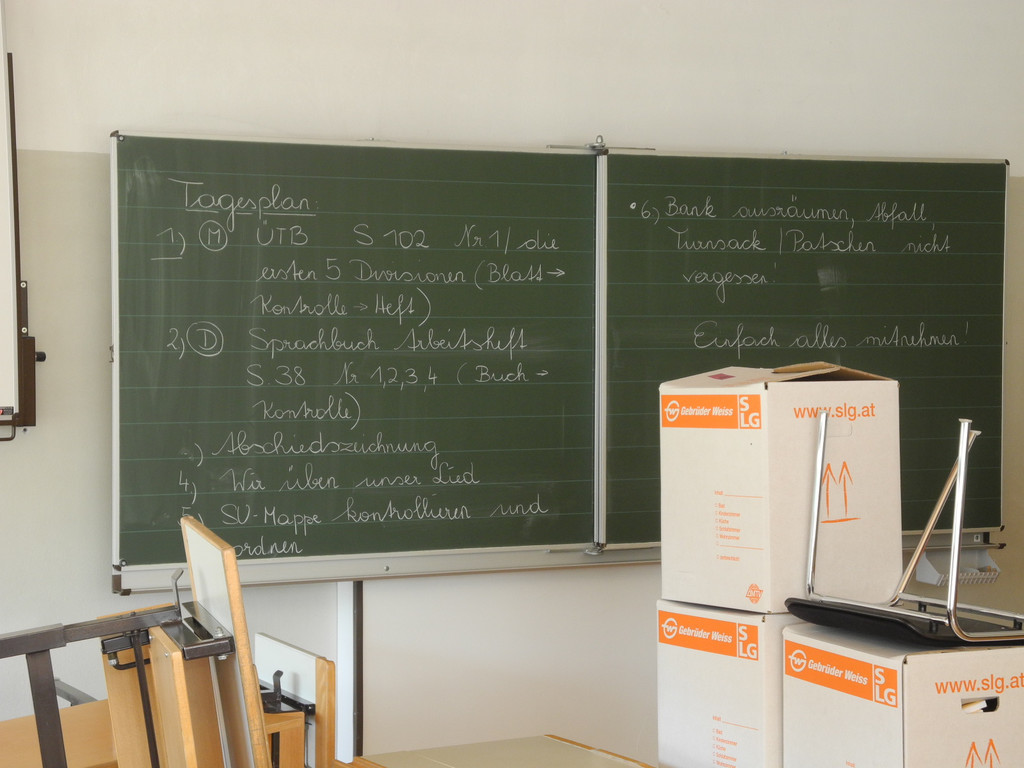 Tagesplan:
1) M ÜTB S 102 Nr 1/ die
ersten 5 Divisionen (Blatt →
Kontrolle → Heft)
2) D Sprachbuch Arbeitsheft
S. 38 Nr 1,2,3,4 (Buch →
Kontrolle)
) Abschiedszeichnung
4) Wir üben unser Lied
5) SU-Mappe kontrollieren und
ordnen
• 6) Bank ausräumen, Abfall
Turnsack / Patschen nicht
vergessen!
Einfach alles mitnehmen!
Gebrüder Weiss SLG
www.slg.at
Gebrüder Weiss SLG
Gebrüder Weiss SLG
www.slg.at